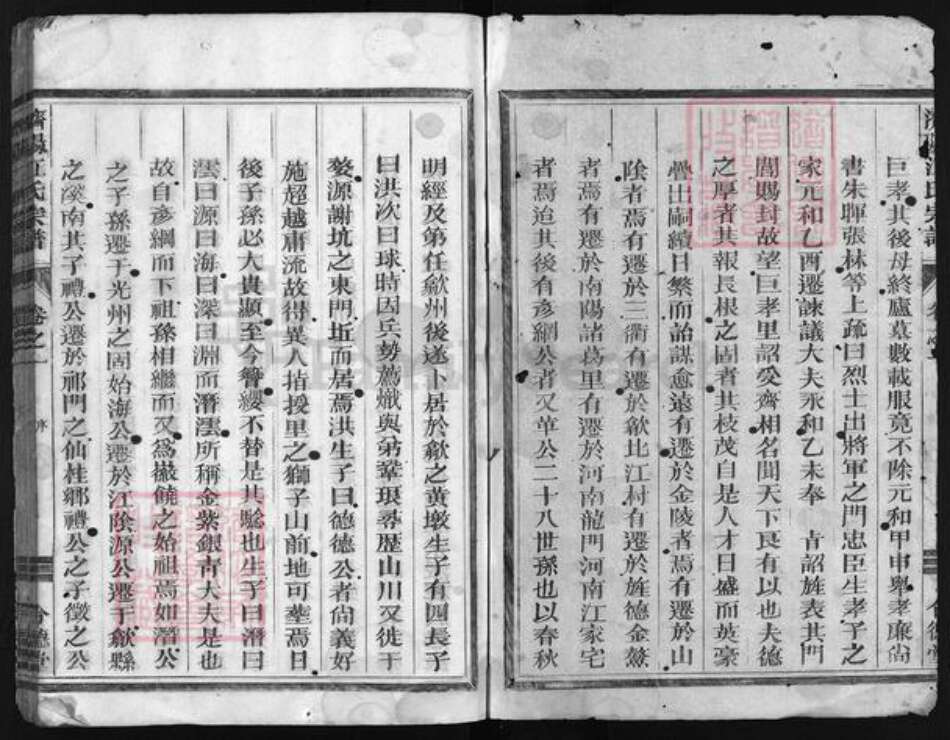 巨孝其後母終廬墓數載服竟不除元和甲申舉孝廉尚
書朱暉張林等上疏曰烈士出將軍之門忠臣生孝子之
家元和乙酉遷諫議大夫永和乙未奉 旨詔旌表其門
閭賜封故望巨孝里詔受齊相名聞天下良有以也夫德
之厚者其報長根之固者其枝茂自是人才日盛而英豪
疊出嗣續日繁而詒謀愈遠有遷於金陵者焉有遷於山
陰者焉有遷於三衢有遷於歙北江村有遷於旌德金鰲
者焉有遷於南陽諸葛里有遷於河南龍門河南江家宅
者焉迨其後有彥綱公者又革公二十八世孫也以春秋
明經及第任歙州後遂卜居於歙之黃墩生子有四長子
曰洪次曰球時因兵勢薦熾與弟鞏琅尋歷山川又徙于
婺源謝坑之東門坵而居焉洪生子曰德德公者尙義好
施超越庸流故得異人指授里之獅子山前地可塟焉日
後子孫必大貴顯至今簪纓不替是其騐也生子曰潛曰
澐曰源曰海曰深曰淵而潛澐所稱金紫銀青大夫是也
故自彥綱而下祖孫相繼而又爲㩵饒之始祖焉如潛公
之子孫遷于光州之固始海公遷於江陰源公遷于歙縣
之溪南其子禮公遷於祁門之仙桂鄉禮公之子徵之公
濟陽江氏宗譜
卷之一
序